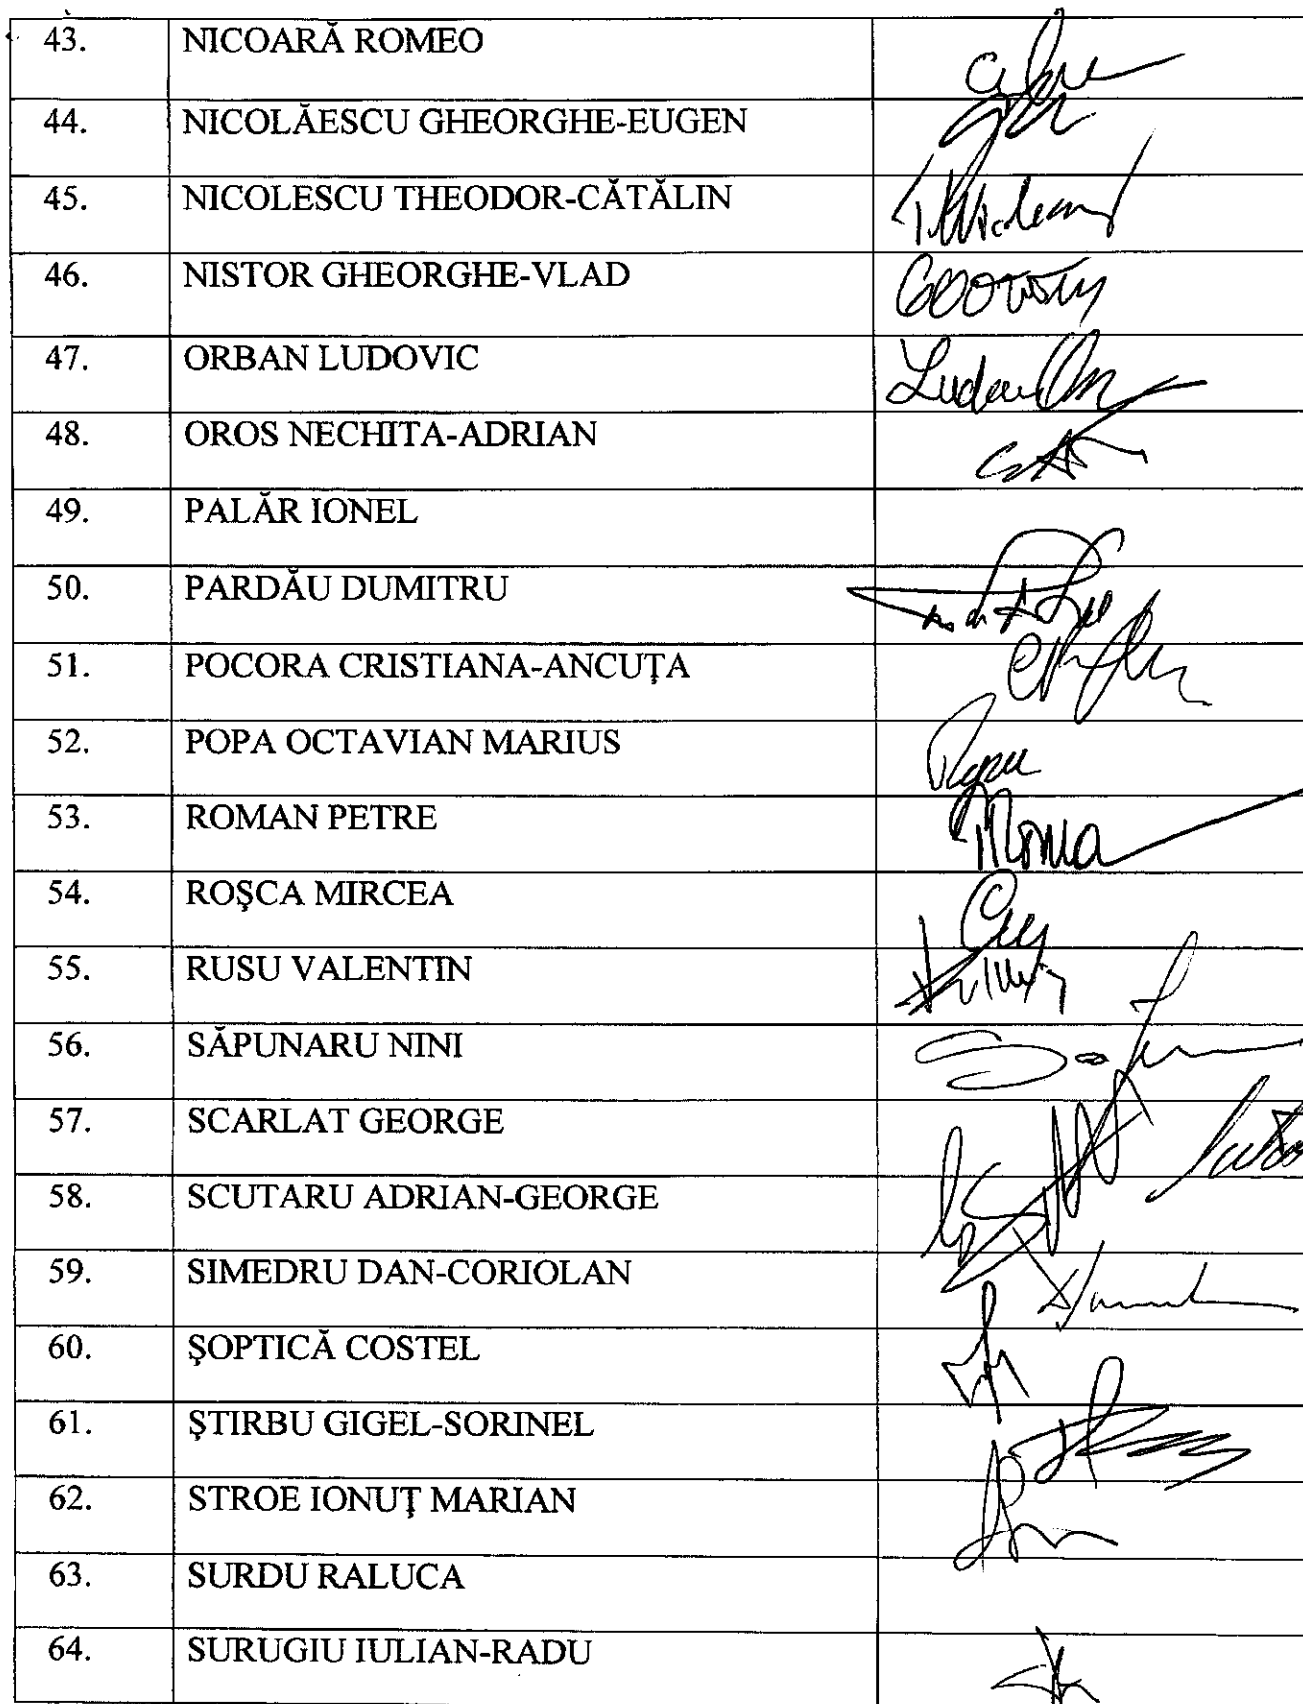 43. NICOARĂ ROMEO
44. NICOLĂESCU GHEORGHE-EUGEN
45. NICOLESCU THEODOR-CĂTĂLIN
46. NISTOR GHEORGHE-VLAD
47. ORBAN LUDOVIC
48. OROS NECHITA-ADRIAN
49. PALĂR IONEL
50. PARDĂU DUMITRU
51. POCORA CRISTIANA-ANCUŢA
52. POPA OCTAVIAN MARIUS
53. ROMAN PETRE
54. ROŞCA MIRCEA
55. RUSU VALENTIN
56. SĂPUNARU NINI
57. SCARLAT GEORGE
58. SCUTARU ADRIAN-GEORGE
59. SIMEDRU DAN-CORIOLAN
60. ŞOPTICĂ COSTEL
61. ŞTIRBU GIGEL-SORINEL
62. STROE IONUŢ MARIAN
63. SURDU RALUCA
64. SURUGIU IULIAN-RADU